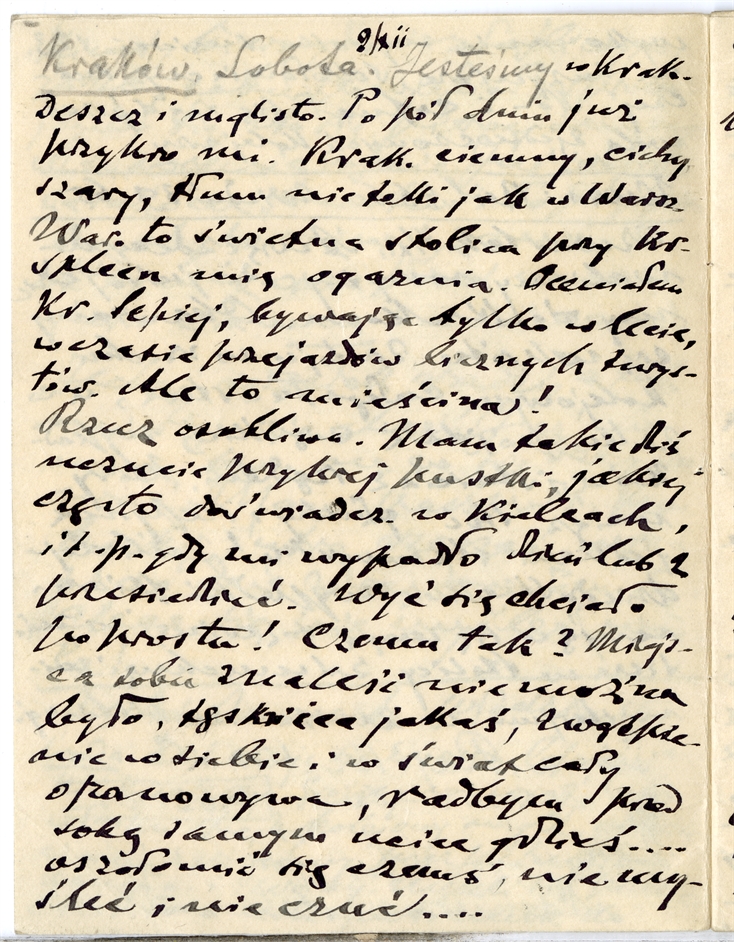 9/XII
Kraków. Sobota. Jesteśmy w Krak.
Deszcz i mglisto. Po pół dniu już
przykro mi. Krak. ciemny, cichy,
szary, tłum nie taki jak w Warsz.
War. to świetna stolica przy Kr.
spleen mię ogarnia. Oceniałem
Kr. lepiej, bywając tylko w lecie,
w czasie przejazdów licznych turys-
tów. Ale to mieścina!
Rzecz osobliwa. Mam takie dziś
uczucie przykrej pustki, jakiej
często doświadcz. w Kielcach,
i t.p. gdy mi wypadło dzień lub 2
przesiedzieć. Wyć się chciało
po prostu! Czemu tak? Miejs-
ca sobie znaleść nie można
było, tęsknica jakaś, zwątpie-
nie w siebie i w świat cały
opanowywa, radbym przed
sobą samym uciec gdzieś....
oszołomić się czemś, nie my-
śleć i nie czuć....